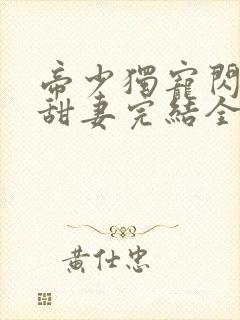 帝少獨寵閃
甜妻完結全
黃仕忠